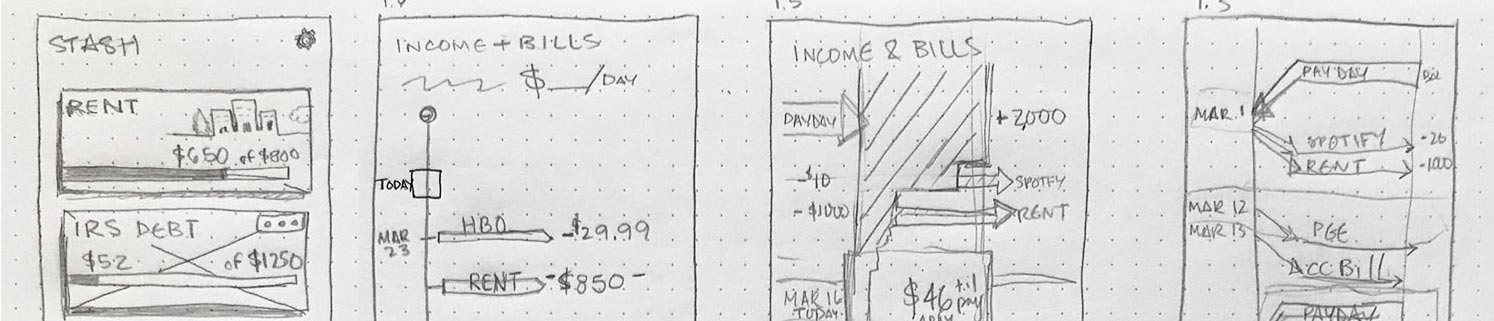 STASH
RENT
$650 of $800
IRS DEBT
$52 of $1250
1.4
INCOME + BILLS
$__/DAY
TODAY
MAR
23
HBO -$29.99
RENT -$850-
1.5
INCOME & BILLS
PAYDAY
+2,000
-$10
SPOTIFY
-$1000
RENT
MAR 16
TODAY
$46 til
pay
1.3
PAYDAY
MAR 1
SPOTIFY
-20
RENT
MAR 12
MAR 13
PGE
ACC BILL
PAYDAY